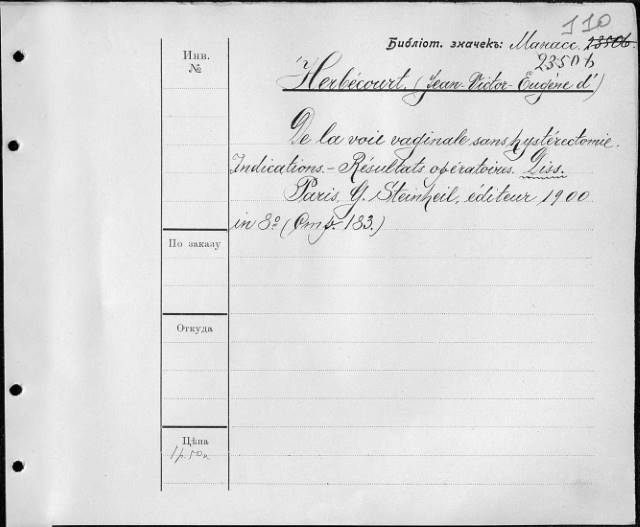 110
Библіот. значекъ: Манасс. 2350b.
2350b
Инв.
№
Herbécourt. (Jean-Victor-Eugène d')
De la voie vaginale sans hystérectomie.
Indications. - Résultats opératoires. Diss.
Paris, G. Steinheil, éditeur, 1900
in 8º (Стр. 183.)
По заказу
Откуда
Цѣна
1 р. 50 к